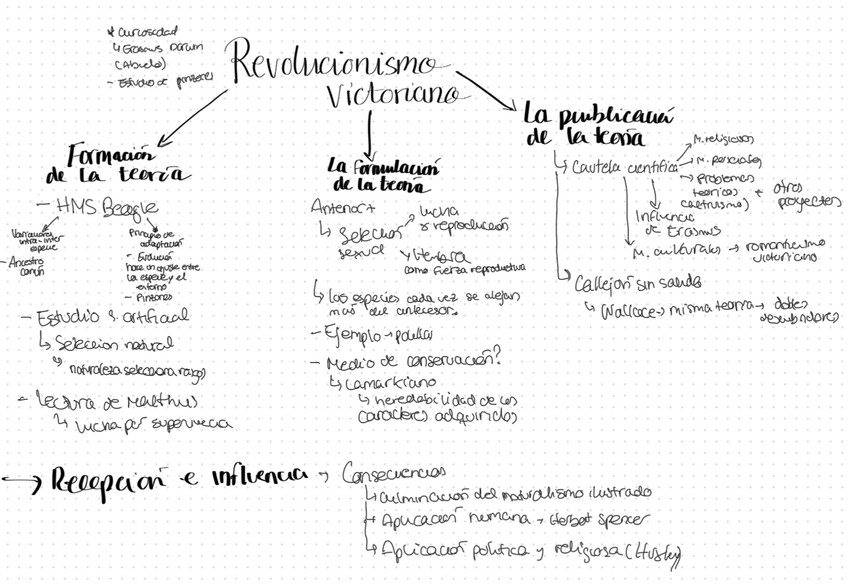 * Curiosidad
↳ Erasmus Darwin
(Abuelo)
- Estudio de pinzones
Revolucionismo
Victoriano
Formación
de la teoría
- HMS Beagle
Variaciones
intra-inter
especie
- Ancestro
común
Principio de
adaptación
- Evolución
hace un ajuste entre
la especie y el
entorno
- Pinzones
- Estudio s. artificial
↳ Selección natural
↳ naturaleza selecciona rasgos
- Lectura de Malthus
↳ lucha por supervivencia
La formulación
de la teoría
Anterior +
↳ Selección
sexual
lucha
x reproducción
y belleza
como fuerza reproductiva
↳ las especies cada vez se alejan
más del antecesor
- Ejemplo → palomas
- Medio de conservación?
↳ Lamarkiano
↳ heredabilidad de los
caracteres adquiridos
La publicación
de la teoría
↳ Cautela científica
→ M. religiosos
→ M. personales
→ Problemas
teóricos
(altruismo)
+ otros
proyectos
Influencia
de Erasmus
M. culturales → romanticismo
victoriano
↳ Callejón sin salida
↳ Wallace → misma teoría → dobles
descubridores
→ Recepción e influencia → Consecuencias
↳ culminación del naturalismo ilustrado
↳ Aplicación humana → Herbert Spencer
↳ Aplicación política y religiosa (Huxley)